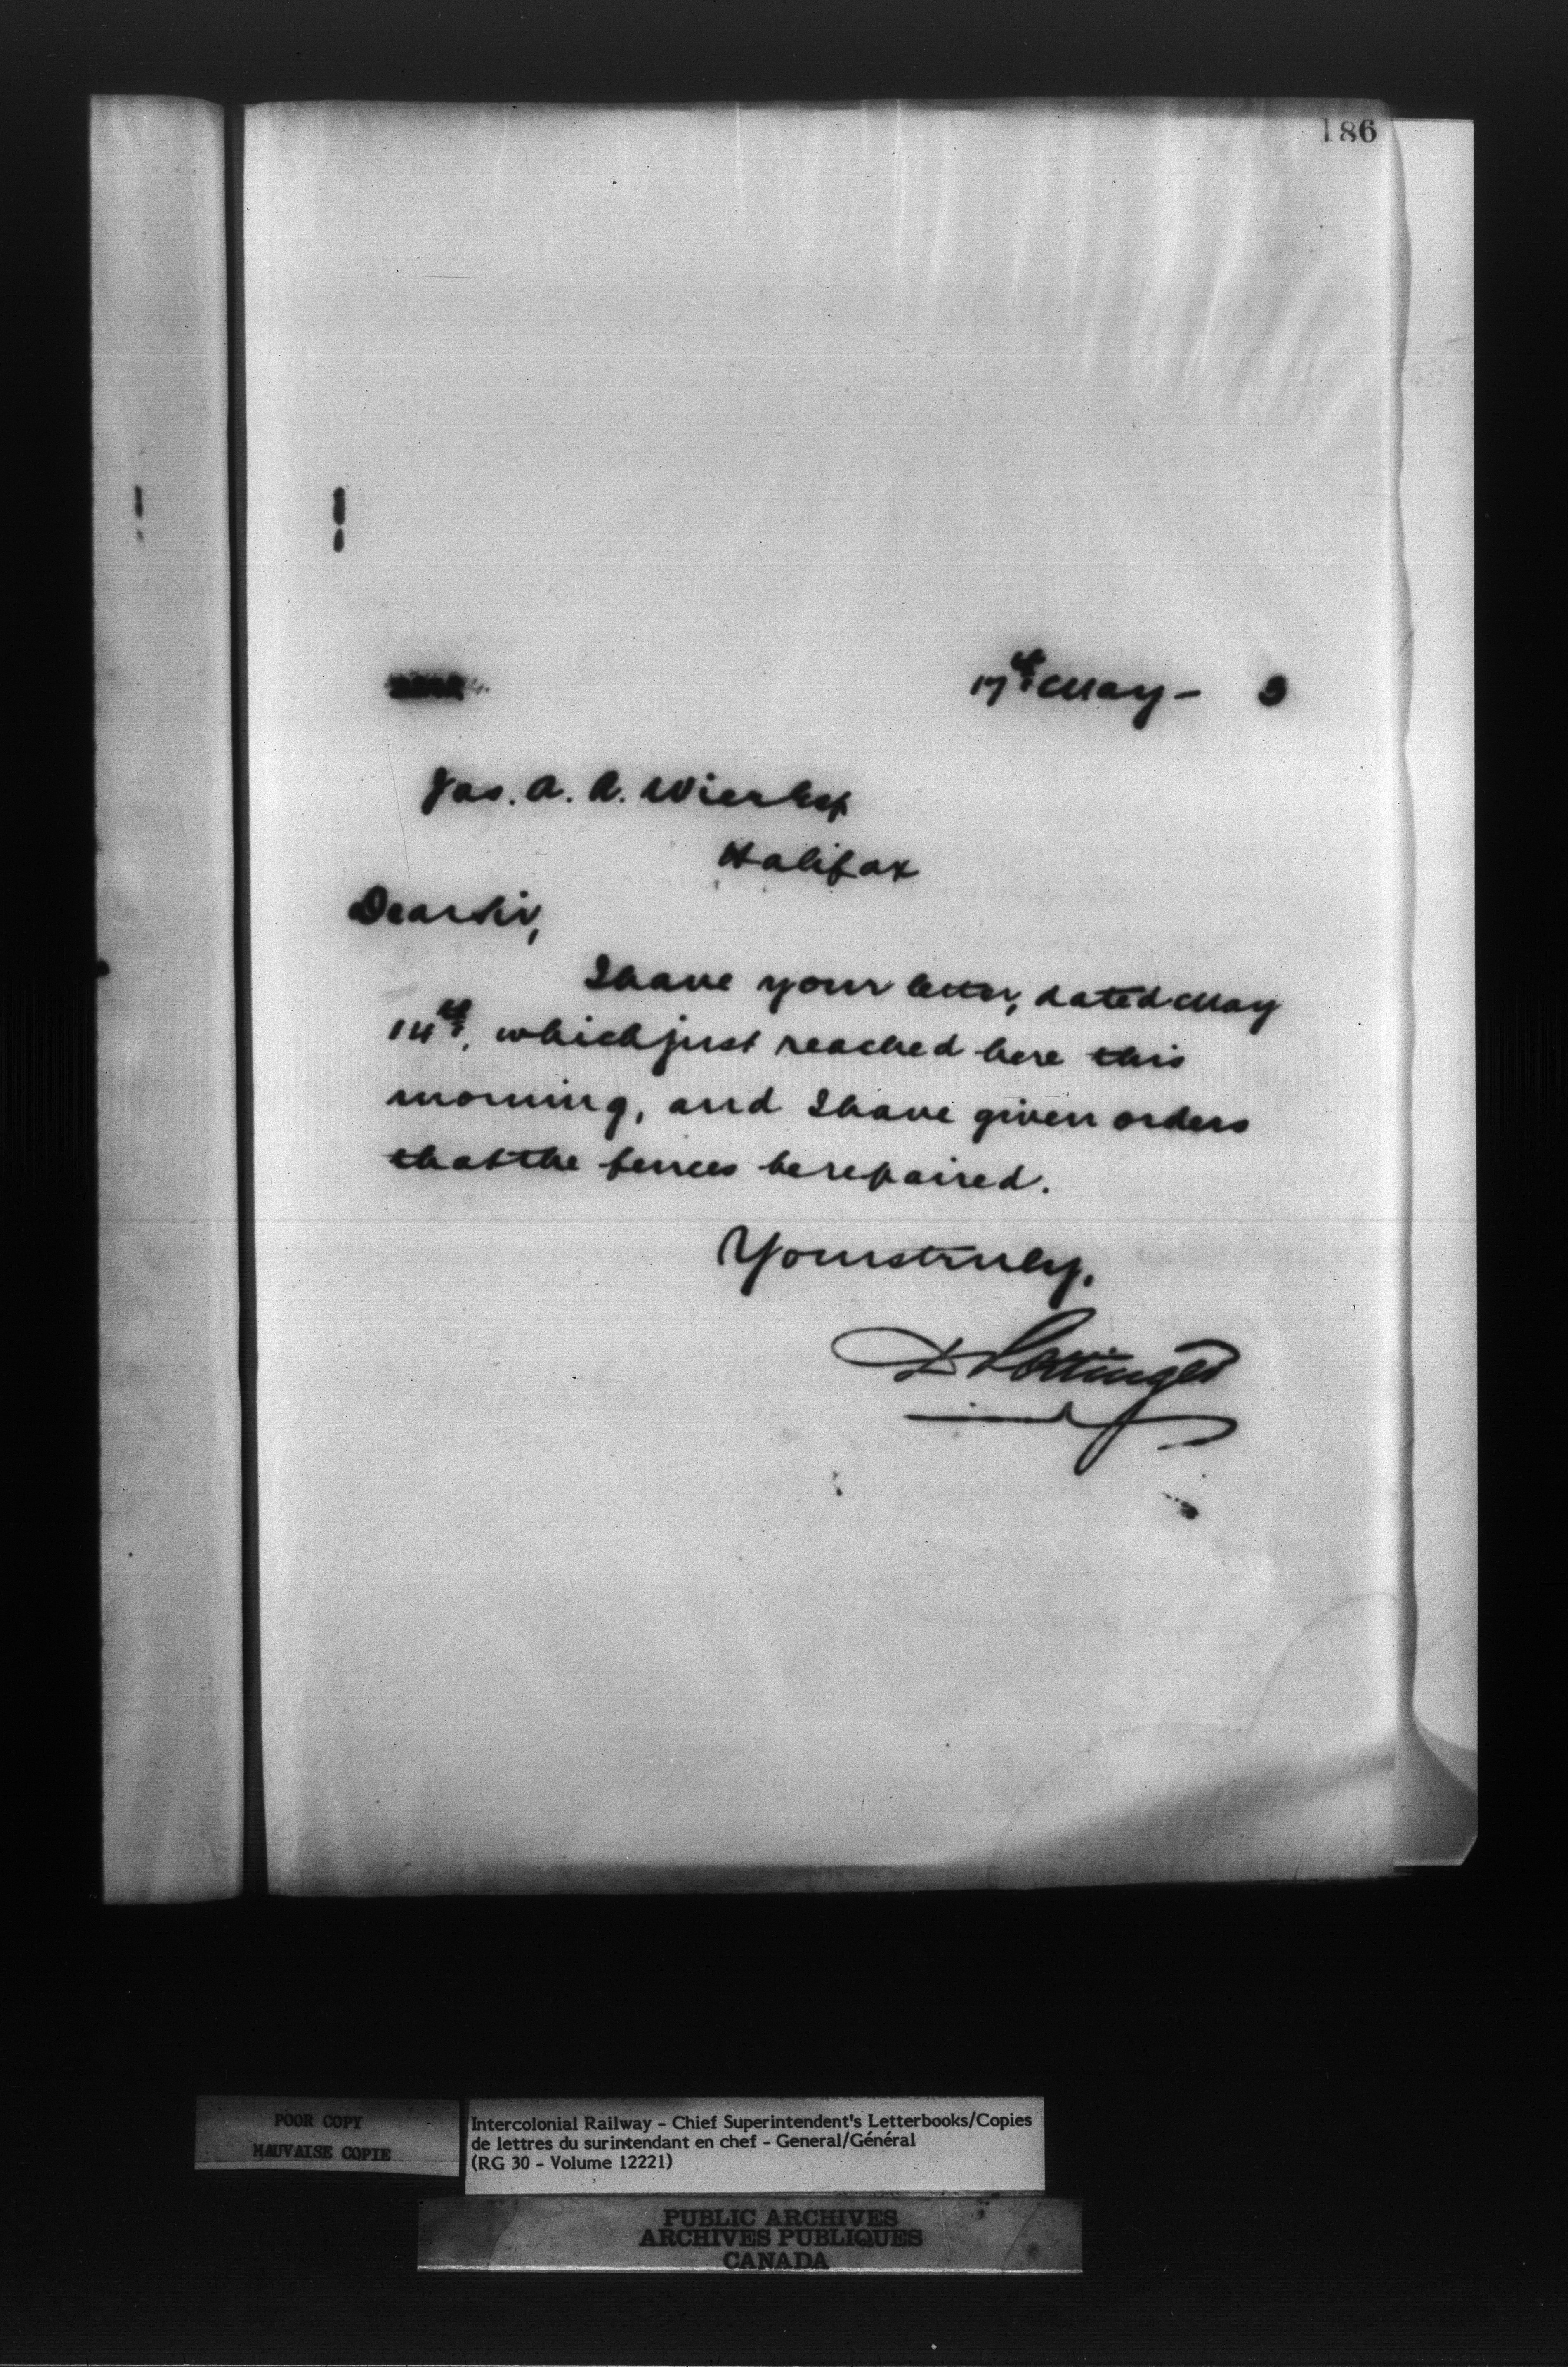 186
17th May - 3
Jas. A. A. Wier Esq
Halifax
Dear Sir,
I have your letter, dated May
14th, which just reached here this
morning, and I have given orders
that the fences be repaired.
Yours truly,
D Pottinger
POOR COPY
MAUVAISE COPIE
Intercolonial Railway - Chief Superintendent's Letterbooks/Copies
de lettres du surintendant en chef - General/Général
(RG 30 - Volume 12221)
PUBLIC ARCHIVES
ARCHIVES PUBLIQUES
CANADA